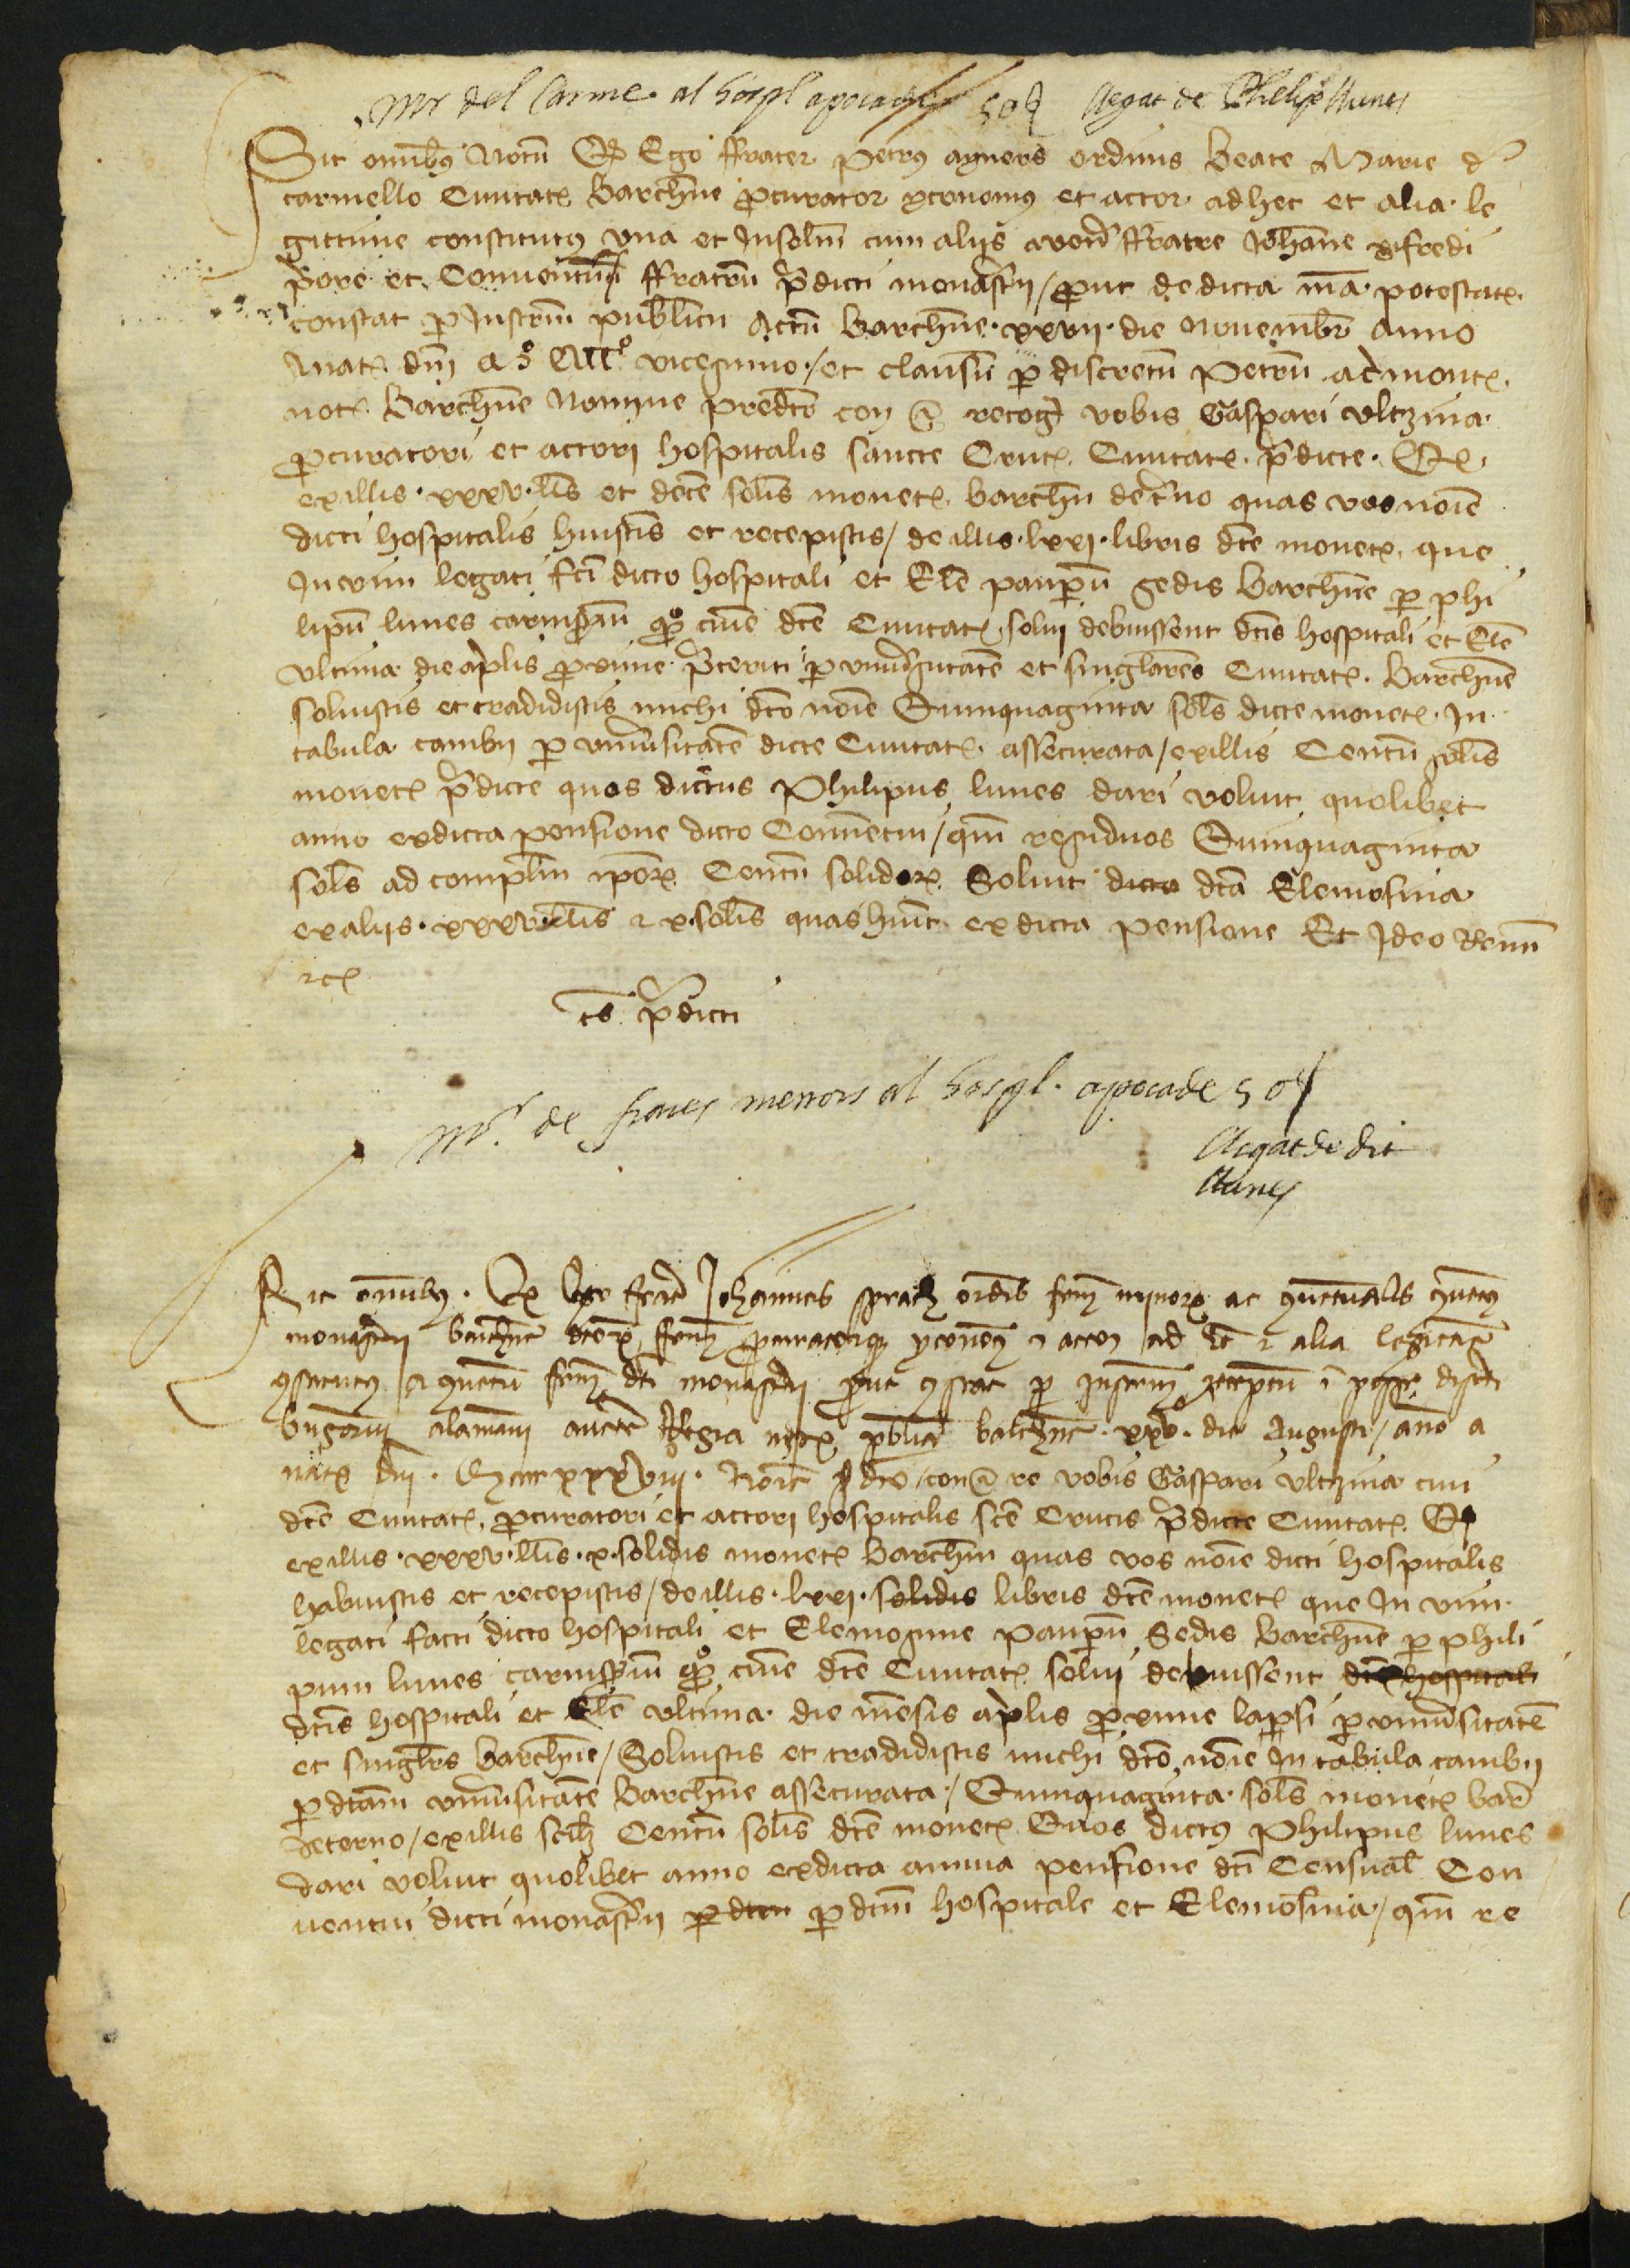 Mr del Carme al hospl apoca de 50 ß llegat de Phelip llunes
Sit omnibus Notu Qd Ego ffrater Petrus ayners ordinis Beate Marie d
carmello Ciuitatis Barchne procurator yconomus et actor ad hec et alia le
gittime constitutus vna et Insolm cum aliis a vene ffratre Iohanne
pore et Conuentu ffratru pdicti monastrii / prout de dicta ma potestate
constat p Instrum publicu Actu Barchne xxvii die Nouembr anno
A nate dni Mo CCCCo vicesimo / et clausu p discretu Petru
note Barchne Nomine predicto con recog vobis Gaspari vltzina
procuratori et actori hospitalis sancte Crucis Ciuitatis pdicte Qd
ex illis xxxv llis et dece solis monete barchn de tno quas vos noie
dicti hospitalis huistis et recepistis / de illis lxxi libris dte monete que
In vim legati fci dicto hospitali et Ele pauperu Sedis barchne p phi
lipu lunes qo ciue dce Ciuitatis solui debuissent dcis hospitali et Ele
vltima die aplis proxime preteriti p vniusitate et singlares Ciuitatis Barchne
soluistis et tradidistis michi dco noie Quinquaginta sols dicte monete In
tabula cambii p vniusitate dicte Ciuitatis assecurata / ex illis Centu solis
monete pdicte quos dictus Philipus lunes dari voluit quolibet
anno ex dicta pensione dicto Conuentui / qm residuos Quinquaginta
sols ad complm ipor Centu solidor Soluit dicta dca Elemosina
ex aliis xxxv llis et x solis quas huit ex dicta pensione Et Ideo Renun
etc
ts pdicti
Mr de frares menors al hospl apoca de 50 ß
llegat de dit
llunes
Sit omnibus Qd Ego frater Iohannes ordis frm minor ac
monastrii barchne dcor frm procurator yconomus et actor ad hec et alia legitime
constitutus a conuentu frm dci monastrii prout constat p Instrum receptu
alamany aucte Regia publicu barchne xxv die Augusti / ano a
nate dni Noie pdco con re vobis Gaspari vltzina ciui
dce Ciuitatis procuratori et actori hospitalis sce Crucis pdicte Ciuitatis Qd
ex illis xxxv llis x solidis monete Barchn quas vos noie dicti hospitalis
habuistis et recepistis / de illis lxxi solidis libris dce monete que In vim
legati facti dicto hospitali et Elemosine pauperu Sedis barchne p phili
pum lunes qo ciue dce Ciuitatis solui debuissent dce hospitali
dcis hospitali et Ele vltima die mensis aplis proxime lapsi p vniusitate
et singlrs barchne / Soluistis et tradidistis michi dco noie In tabula cambii
p dcam vniusitate barchne assecurata / Quinquaginta sols monete bar
de terno / ex illis scilz Centu solis dce monete Quos dictus Philipus lunes
dari voluit quolibet anno ex dicta annua pensione dci Censual Con
uentui dicti monastrii p dcm p dcm hospitale et Elemosina / qm re